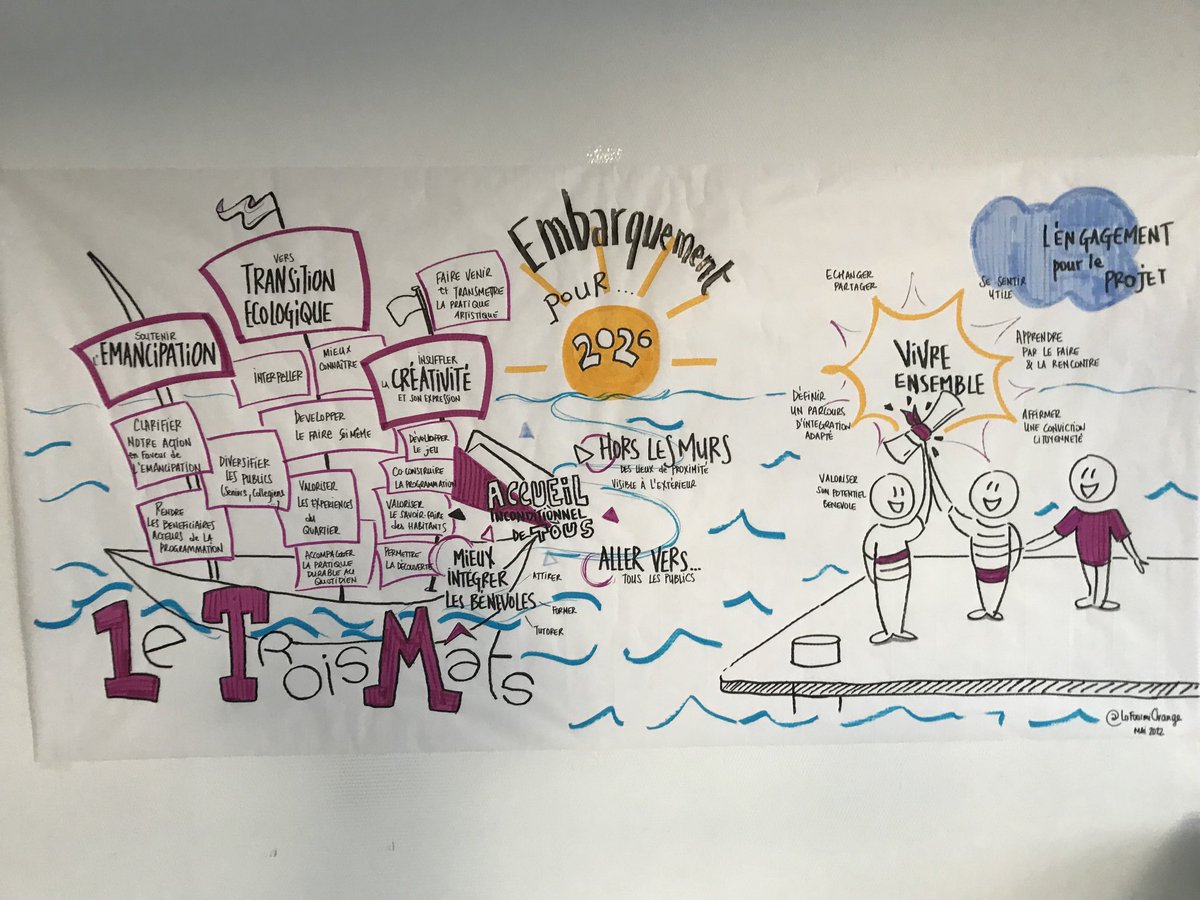 SOUTENIR
L'EMANCIPATION
CLARIFIER
NOTRE ACTION
en FAVEUR de
L'EMANCIPATION
RENDRE
LES BENEFICIAIRES
ACTEURS de LA
PROGRAMMATION
DIVERSIFIER
LES PUBLICS
(Seniors, Collegiens)
VERS
TRANSITION
ECOLOGIQUE
INTERPELLER
MIEUX
CONNAÎTRE
DEVELOPPER
LE FAIRE SOI MÊME
VALORISER
LES EXPERIENCES
du
QUARTIER
ACCOMPAGNER
LA PRATIQUE
DURABLE AU
QUOTIDIEN
FAIRE VENIR
et TRANSMETTRE
LA PRATIQUE
ARTISTIQUE
INSUFFLER
LA CRÉATIVITÉ
ET SON EXPRESSION
DEVELOPPER
LE JEU
CO-CONSTRUIRE
LA PROGRAMMATION
VALORISER
LE SAVOIR-FAIRE
des HABITANTS
PERMETTRE
LA DÉCOUVERTE
ACCUEIL
INCONDITIONNEL
DE TOUS
MIEUX
INTÉGRER
LES BÉNÉVOLES
ATTIRER
FORMER
TUTORER
Le TROIS MÂTS
Embarquement
POUR...
2026
HORS LES MURS
DES LIEUX DE PROXIMITÉ
VISIBLE À L'EXTÉRIEUR
ALLER VERS...
TOUS LES PUBLICS
L'ENGAGEMENT
pour le
PROJET
VIVRE
ENSEMBLE
ECHANGER
PARTAGER
SE SENTIR
UTILE
APPRENDRE
PAR LE FAIRE
& LA RENCONTRE
DÉFINIR
UN PARCOURS
D'INTÉGRATION
ADAPTÉ
AFFIRMER
UNE CONVICTION
CITOYENNETÉ
VALORISER
SON POTENTIEL
BENEVOLE
@LaFourmiOrange
MAI 2022